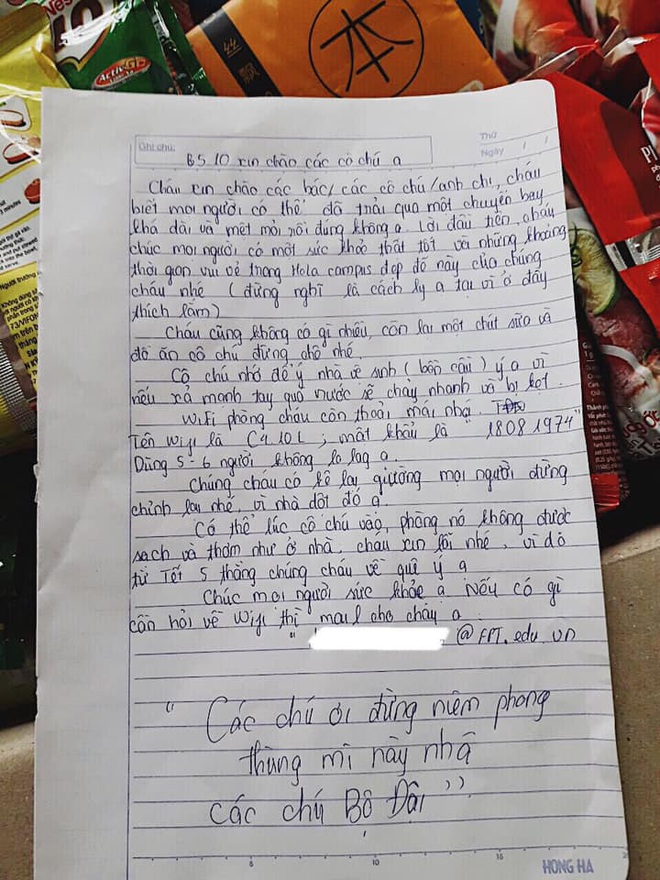 Nes
ActivGo
本
Ghi chú:
Thứ
Ngày / /
B510 xin chào các cô chú ạ
Cháu xin chào các bác/ các cô chú/anh chị, cháu
biết mọi người có thể đã trải qua một chuyến bay
khá dài và mệt mỏi rồi đúng không ạ. Lời đầu tiên, cháu
chúc mọi người có một sức khỏe thật tốt và những khoảng
thời gian vui vẻ trong Hola campus đẹp đẽ này của chúng
cháu nhé (đừng nghĩ là cách ly ạ tại vì ở đây
thích lắm)
Cháu cũng không có gì nhiều, còn lại một chút sữa và
đồ ăn cô chú đừng chê nhé.
Cô chú nhớ để ý nhà vệ sinh (bồn cầu) ý ạ vì
nếu xả mạnh tay quá nước sẽ chảy nhanh và bị kẹt.
Wifi phòng cháu còn thoải mái nhá.
Tên Wifi là C410L, mật khẩu là "18081974"
Dùng 5-6 người không lo lag ạ.
Chúng cháu có kê lại giường mọi người đừng
chỉnh lại nhé, vì nhà dột đó ạ.
Có thể lúc cô chú vào, phòng nó không được
sạch và thơm như ở nhà, cháu xin lỗi nhé, vì đó
từ Tết 5 tháng chúng cháu về quê ý ạ
Chúc mọi người sức khỏe ạ Nếu có gì
cần hỏi về Wifi thì mail cho cháu ạ
"@FPT.edu.vn
"Các chú ơi đừng niêm phong
thùng mì này nhá
các chú Bộ Đội"
5 10 15 20
HONG HA